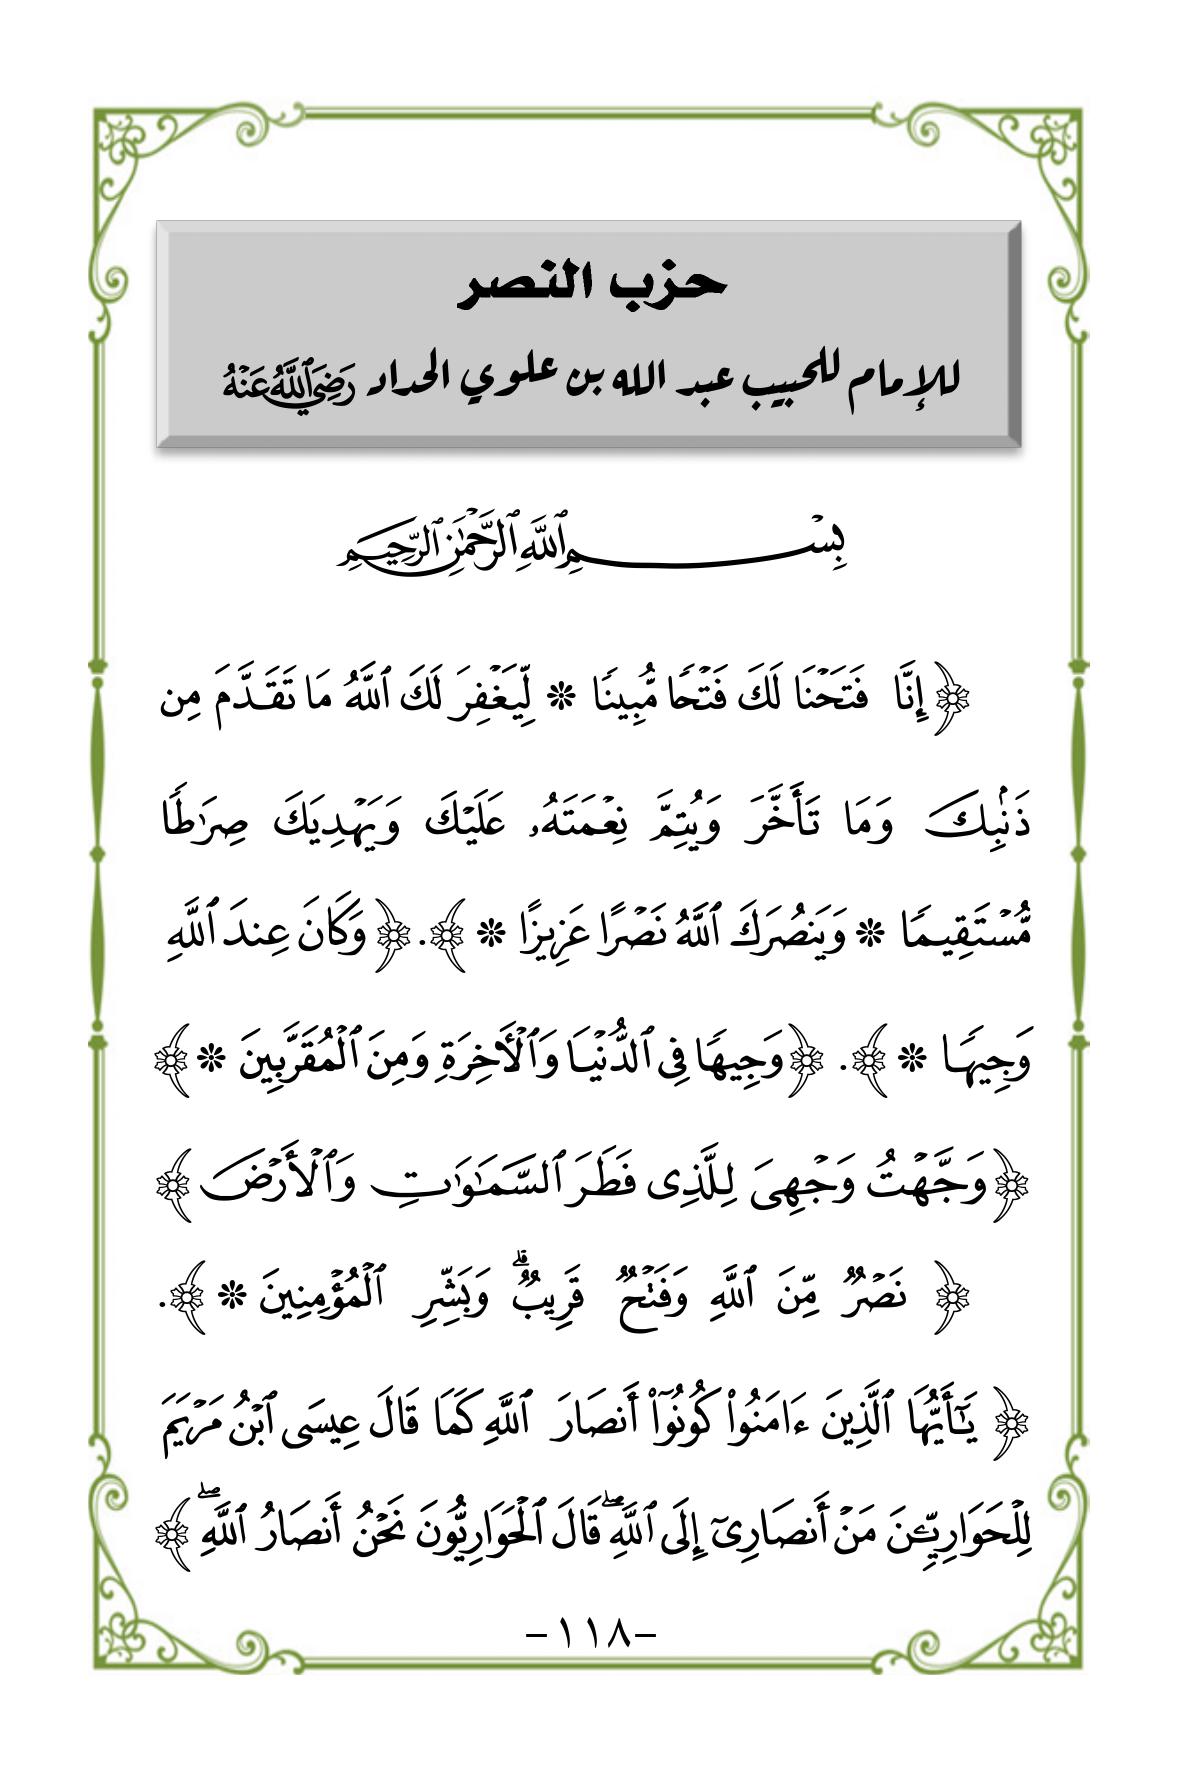 حزب النصر
للإمام للحبيب عبد الله بن علوي الحداد رَضِيَ ٱللَّهُ عَنْهُ
بِسْمِ ٱللَّهِ ٱلرَّحْمَٰنِ ٱلرَّحِيمِ
﴿ إِنَّا فَتَحْنَا لَكَ فَتْحًا مُّبِينًا ❇ لِّيَغْفِرَ لَكَ ٱللَّهُ مَا تَقَدَّمَ مِن
ذَنۢبِكَ وَمَا تَأَخَّرَ وَيُتِمَّ نِعْمَتَهُۥ عَلَيْكَ وَيَهْدِيَكَ صِرَٰطًا
مُّسْتَقِيمًا ❇ وَيَنصُرَكَ ٱللَّهُ نَصْرًا عَزِيزًا ❇ ﴾. ﴿ وَكَانَ عِندَ ٱللَّهِ
وَجِيهًا ❇ ﴾. ﴿ وَجِيهًا فِى ٱلدُّنْيَا وَٱلْأَخِرَةِ وَمِنَ ٱلْمُقَرَّبِينَ ❇ ﴾
﴿ وَجَّهْتُ وَجْهِىَ لِلَّذِى فَطَرَ ٱلسَّمَٰوَٰتِ وَٱلْأَرْضَ ﴾
﴿ نَصْرٌ مِّنَ ٱللَّهِ وَفَتْحٌ قَرِيبٌ ۗ وَبَشِّرِ ٱلْمُؤْمِنِينَ ❇ ﴾.
﴿ يَٰٓأَيُّهَا ٱلَّذِينَ ءَامَنُوا۟ كُونُوٓا۟ أَنصَارَ ٱللَّهِ كَمَا قَالَ عِيسَى ٱبْنُ مَرْيَمَ
لِلْحَوَارِيِّـۧنَ مَنْ أَنصَارِىٓ إِلَى ٱللَّهِ ۖ قَالَ ٱلْحَوَارِيُّونَ نَحْنُ أَنصَارُ ٱللَّهِ ۖ ﴾
-١١٨-